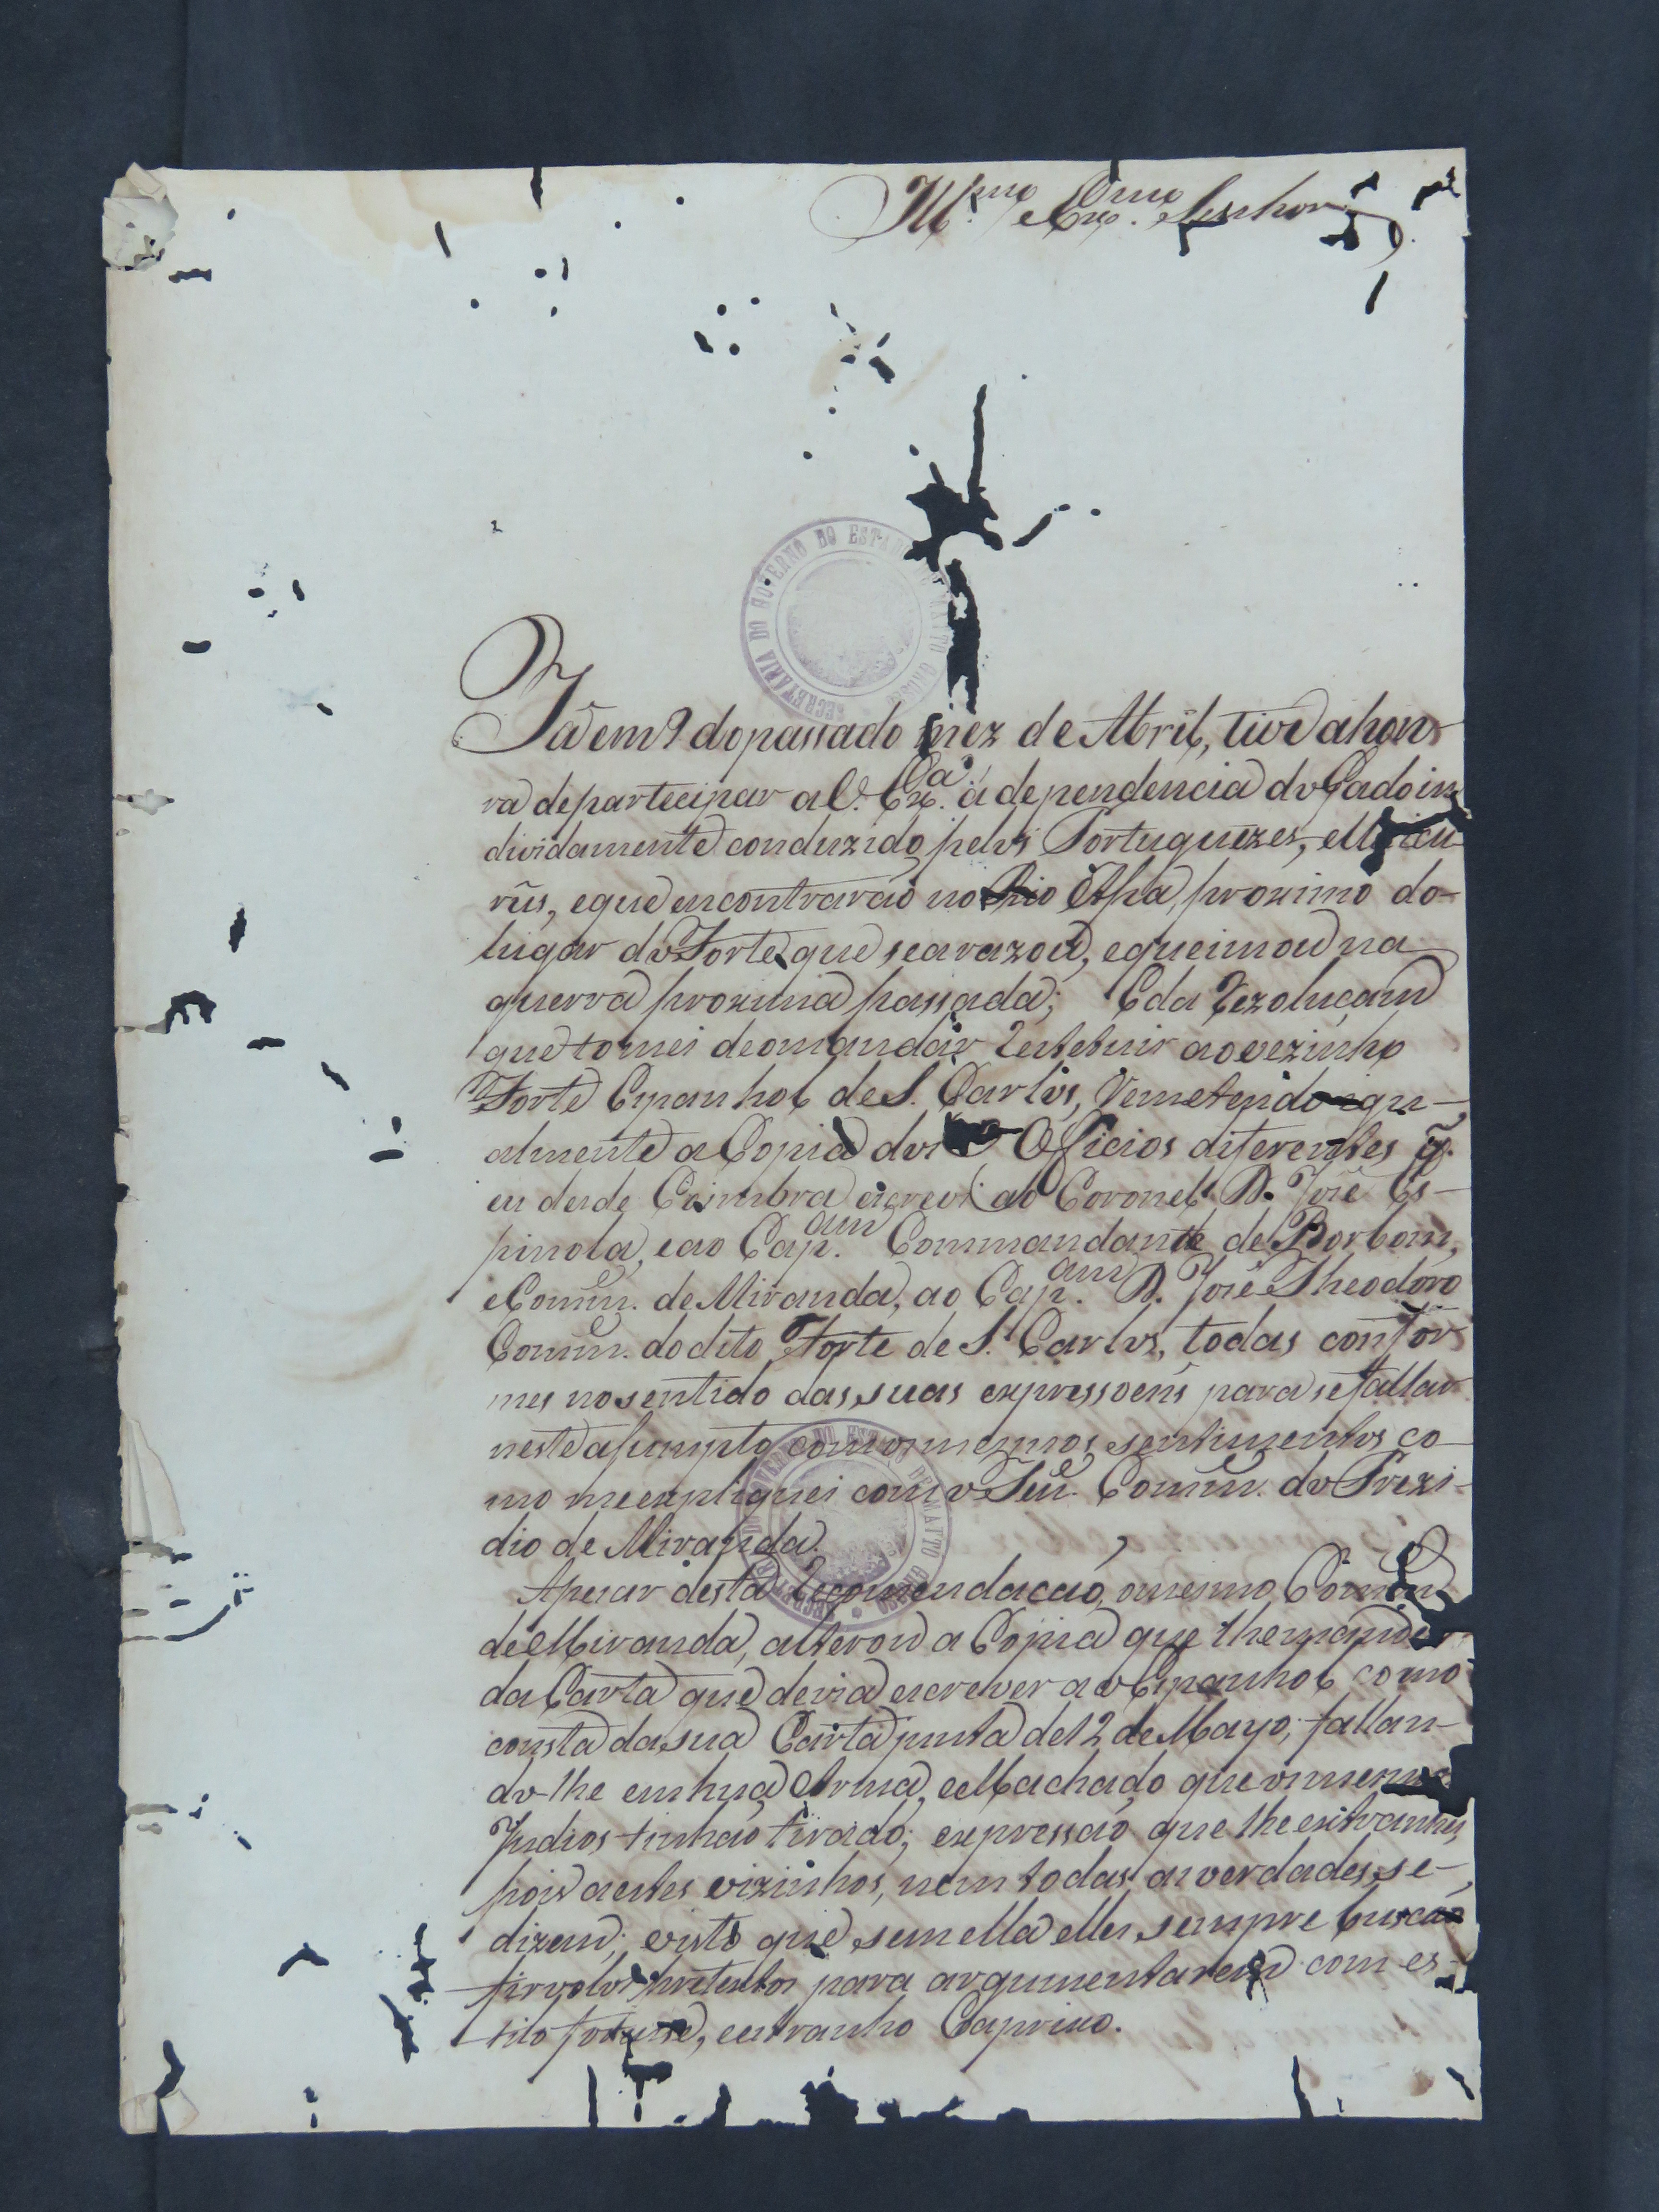 Ill.mo e Ex.mo Senhor
SECRETARIA DO GOVERNO DO ESTADO DE MATTO GROSSO
Já em 9 do passado mez de Abril, tive a hon-
ra de partecipar a V. Ex.ca a dependencia do Gado in-
dividamente conduzido pelos Portuguezes, e Uaicu-
rûs, e que encontrarão no Rio Apa, proximo do
lugar do Forte que se arazou, e queimou na
guerra proxima passada; E da rezoluçam
que tomei de o mandar restetuir ao vezinho
Forte Espanhol de S. Carlos, remetendo igu-
almente a Copia dos Officios diferentes q̃.
eu desde Coimbra escrevi ao Coronel D. José Es-
pinola, e ao Cap.am Commandante de Borbom,
e Comm.e de Miranda, ao Cap.am D. José Theodoro
Comm.e do dito Forte de S. Carlos, todas confor-
mes no sentido das suas expressoens para se fallar
neste asumpto com os mesmos sentimentos co-
mo me expliquei com o Ten.e Comm.e do Prezi-
dio de Miranda.
SECRETARIA DO GOVERNO DO ESTADO DE MATTO GROSSO
Apezar desta recomendacão, o mesmo Comm.e
de Miranda, alterou a Copia que lhe mandei
da Carta que devia escrever ao Espanhol como
consta da sua Carta junta de 12 de Mayo; fallan-
do-lhe em huã Arma, e Machado que os mesmos
Indios tinhão tirado; expressão que lhe estranhei,
pois a estes vizinhos, nem todas as verdades se-
dizem; visto que sem ella elles sempre buscão
frivolos pretextos para argumentarem com es-
tilo forense, e estranho Caprixo.